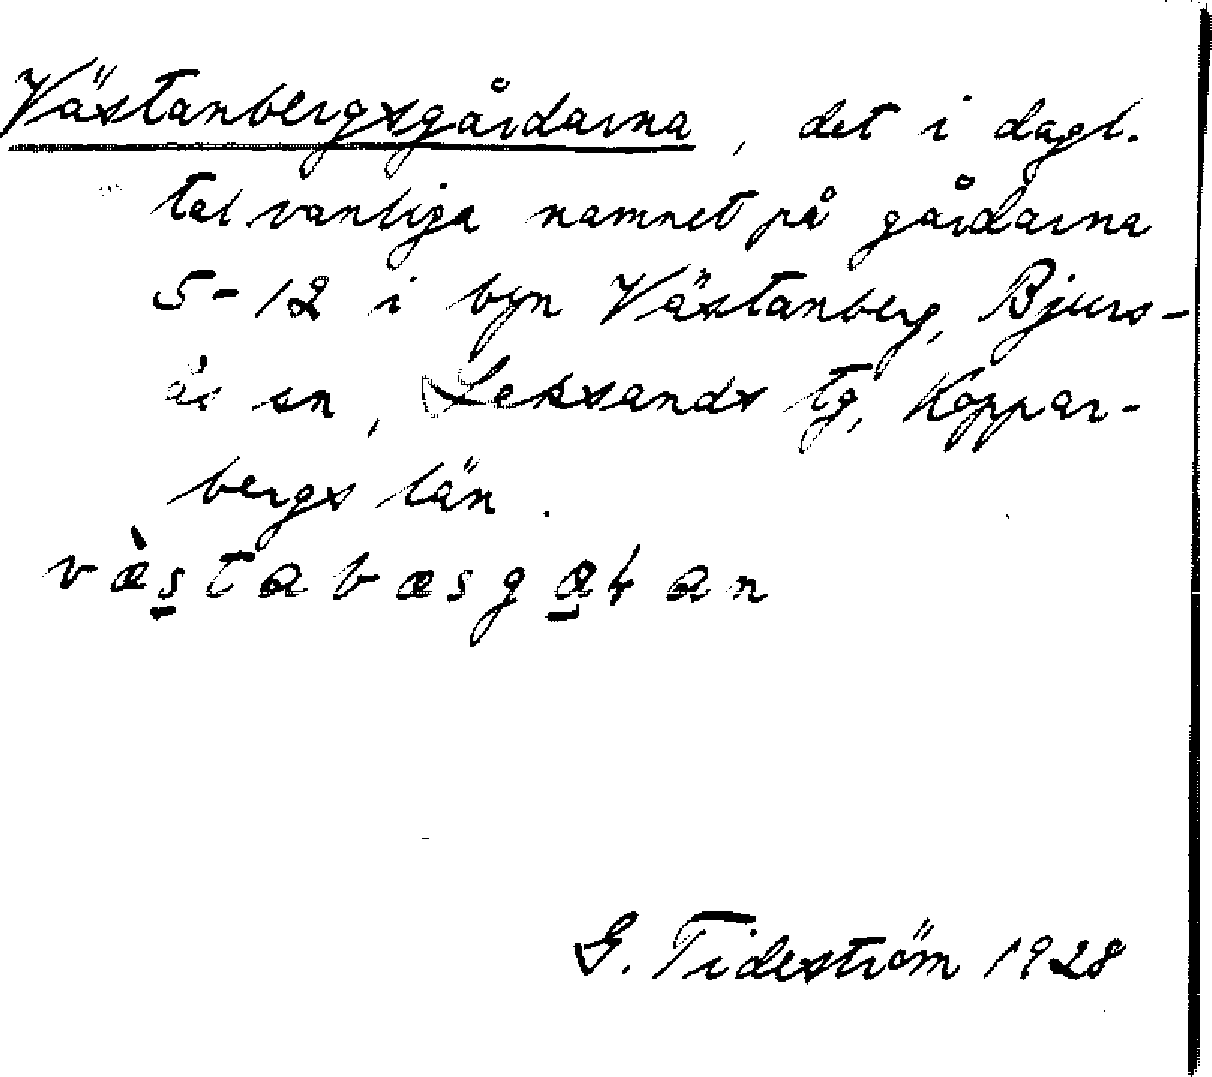 Västanbergsgårdarna, det i dagl.
tal vanliga namnet på gårdarna
5-12 i byn Västanberg, Bjurs-
ås sn, Leksands tg, Koppar-
bergs län.
væ̀s̲tabæsga̲ɬan
G. Tideström 1928